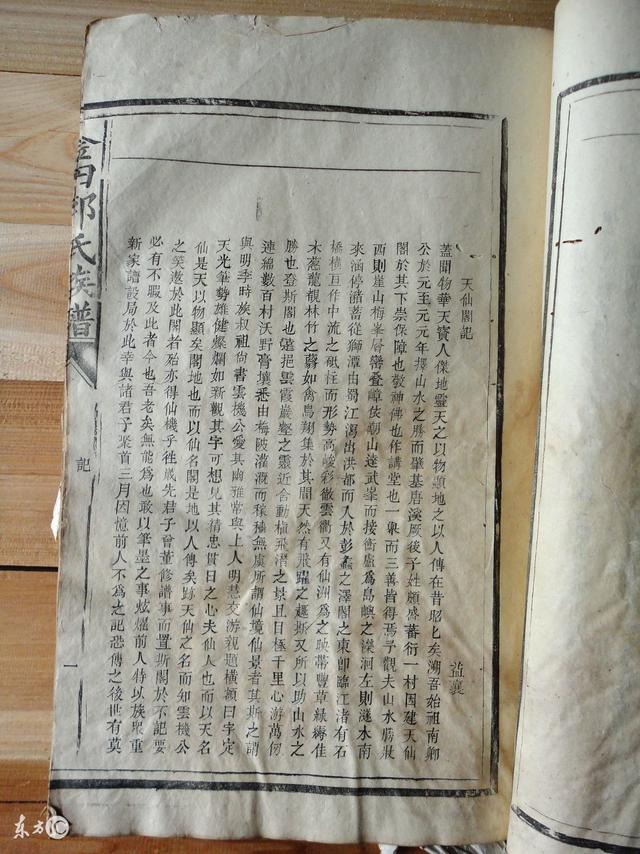 天仙閣記
益襄
蓋聞物華天寶人傑地靈天之以物顯地之以人傳在昔昭昭矣溯吾始祖南卿
公於元至元元年擇山水之勝而肇基唐溪厥後子姓頗盛蕃衍一村因建天仙
閣於其下崇保障也敬神佛也作講堂也一舉而三善皆得焉予觀夫山水勝狀
西則崖山梅峯層巒叠嶂伎朝山達武峯而接衡廬為島嶼之濚洄左則濜水南
來涵停潴蓄從獅潭由蜀江瀉出洪都而入於彭蠡之澤閣之東卽臨江渚有石
橋橫亘作中流之砥柱而形勢高峻彩徹雲衢又有仙洲為之映帶豐草綠縟佳
木葱蘢覩林竹之蓊如禽鳥翔集於其間天然有飛躍之趣斯又所以助山水之
勝也登斯閣也遠挹雲霞巖壑之靈近含動植飛潛之景且目極千里心游萬仞
連綿數百村沃野膏壤悉由梅陂灌溉而稼穡無虞所謂仙境仙景者其斯之謂
與明季時族叔祖尚書雲機公愛其幽雅常與上人明慧交游親題橫額曰字定
天光筆勢雄健燦爛如新觀其字可想見其精忠貫日之心夫仙人也而以天名
仙是天以物顯矣閣地也而以仙名閣是地以人傳矣跡天仙之名而知雲機公
之奖遊於此閣者殆亦得仙機乎徃歲先君子曾董修譜事而置斯閣於不記要
必有不暇及此者今也吾老矣無能為也敢以筆墨之事炫燿前人特以族衆重
新家譜設局於此幸與諸君子聚首三月因憶前人不為之記恐傳之後世有莫
邱氏族譜
記
一
东方